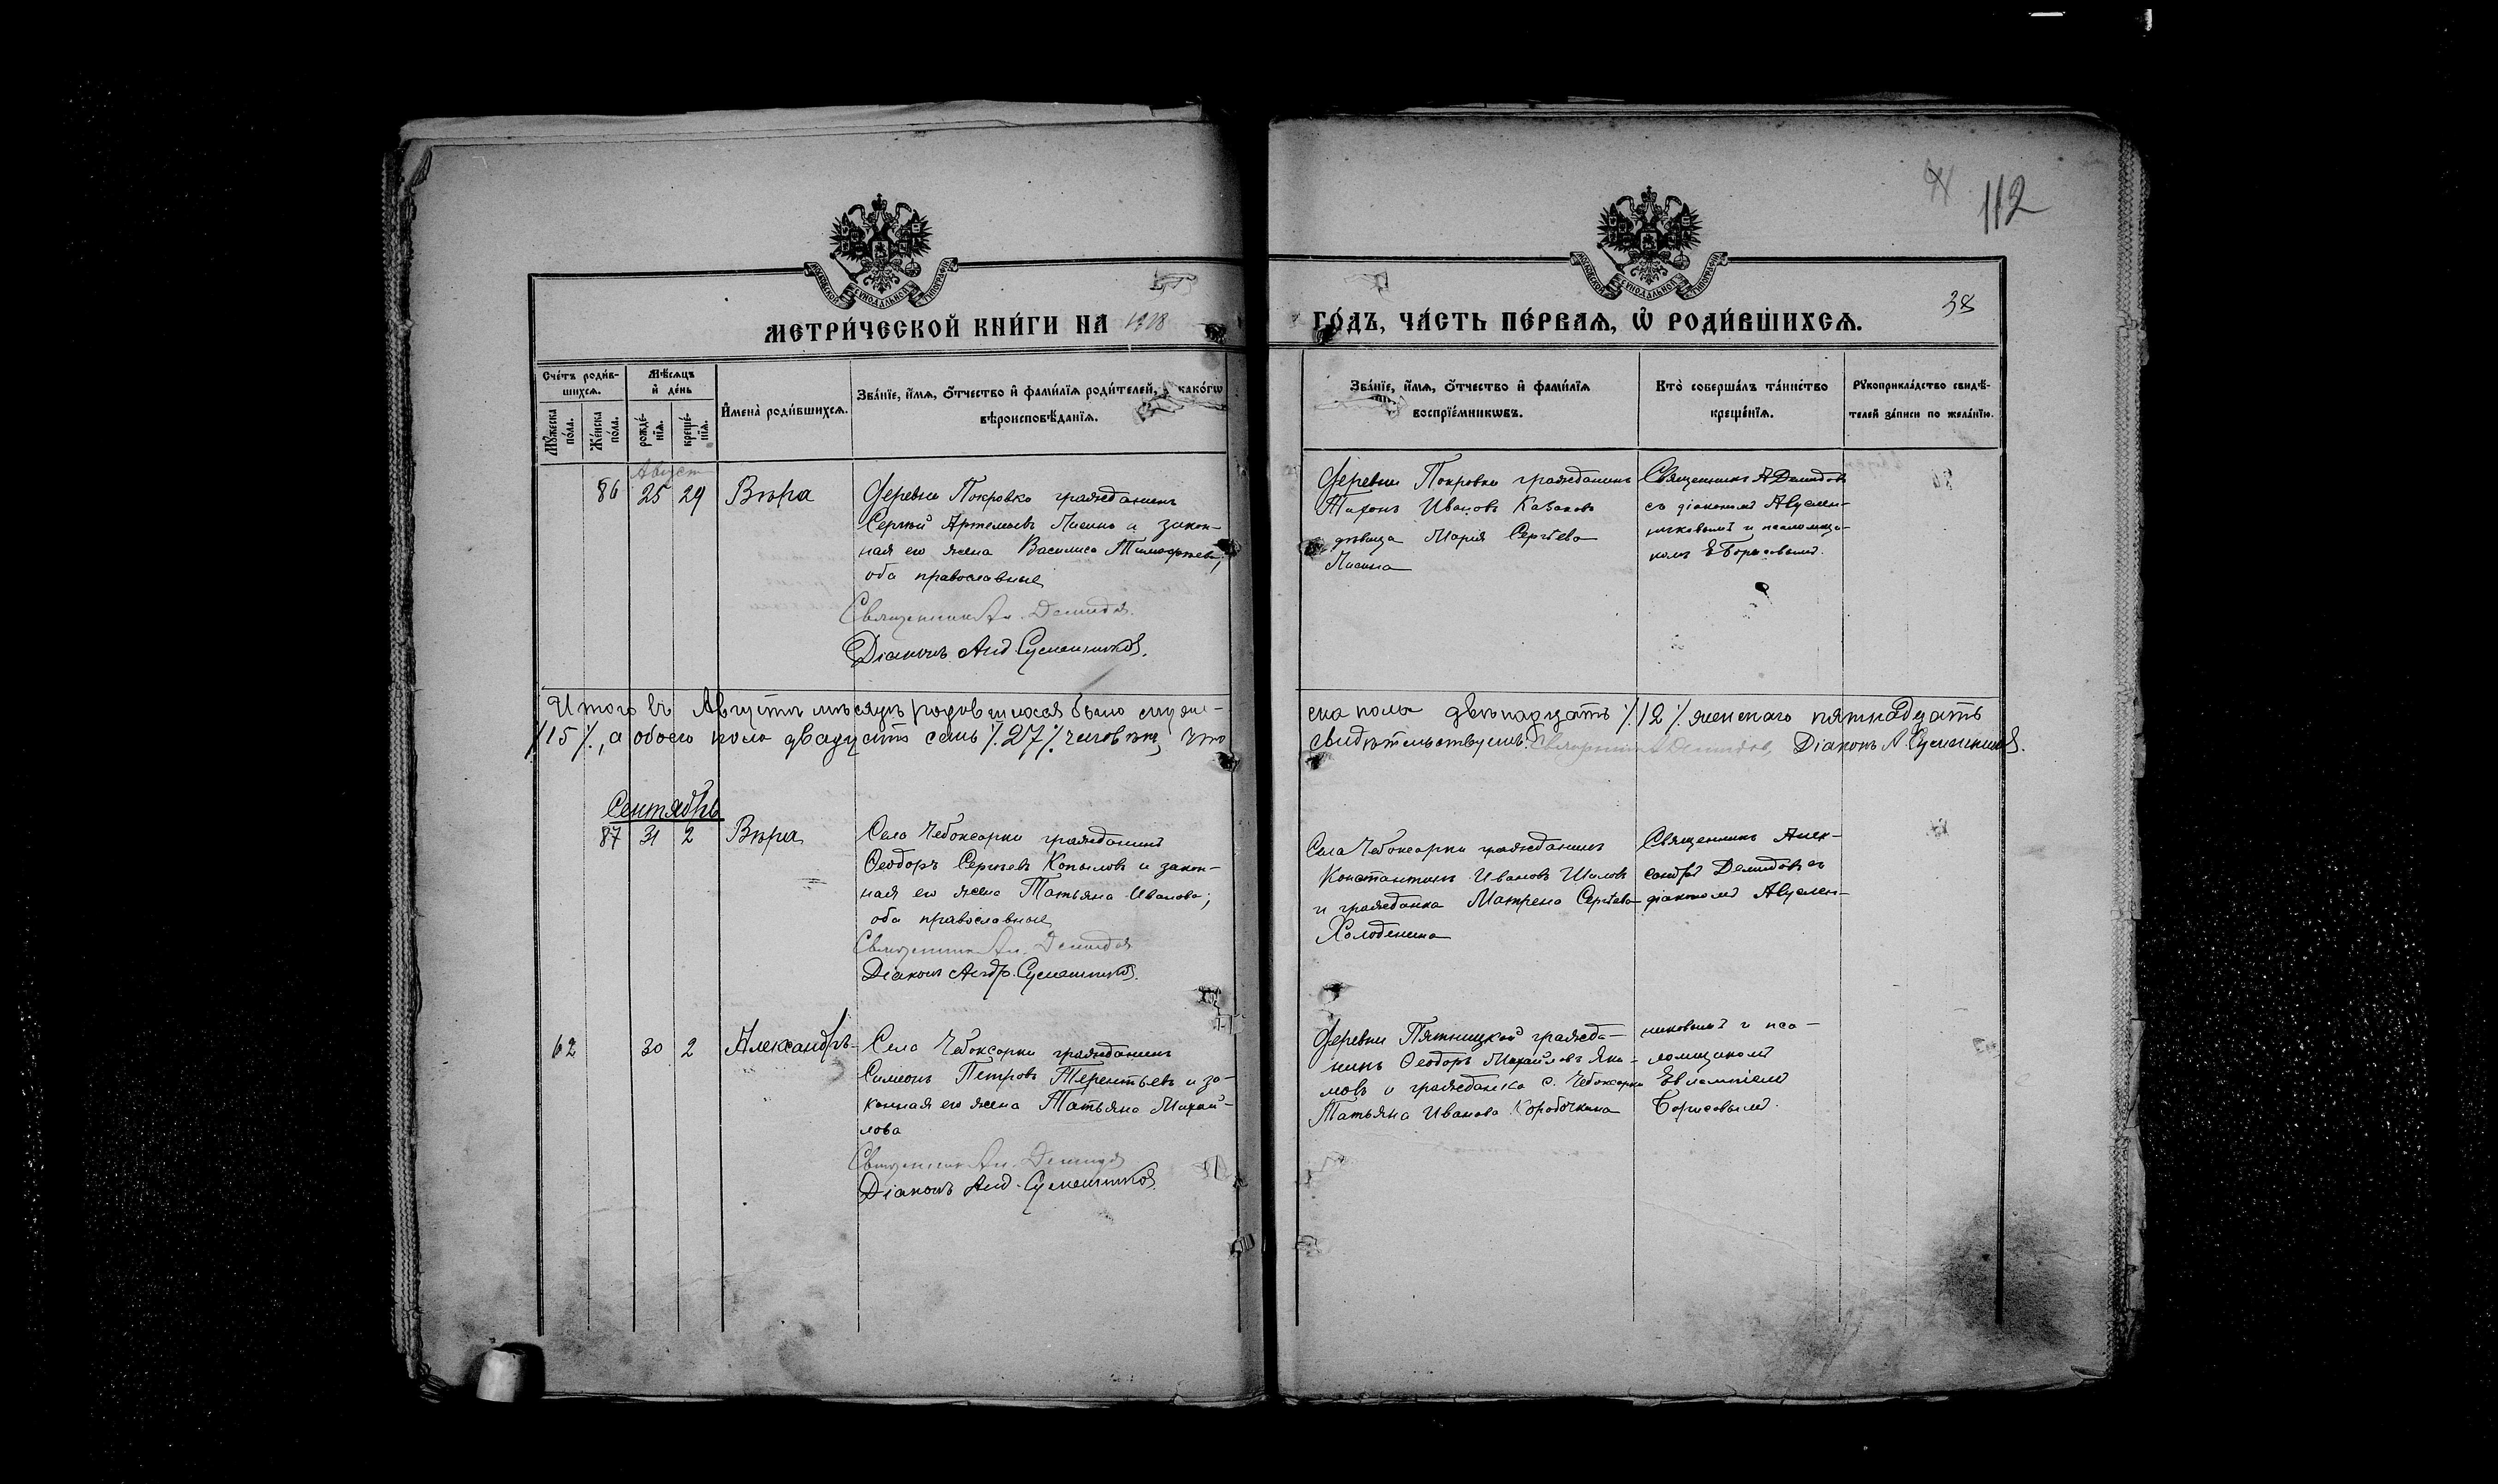 112
38
МЕТРИ́ЧЕСКОЙ КНИ́ГИ НА 1918
ГО́ДЪ, ЧА́СТЬ ПЕ́РВАѦ, Ѡ РОДИ́ВШИХСѦ.
Сче́тъ роди́в-
шихсѧ.
Мѣ́сѧцъ
и де́нь
Мꙋ́жеска по́ла.
Же́нска по́ла.
рожде́-
нїѧ.
креще́-
нїѧ.
И҆мена̀ роди́вшихсѧ.
Зва́нїе, и҆́мѧ, о҆́тчество и҆ фами́лїѧ роди́телей, како́гѡ
вѣроисповѣ́данїѧ.
Зва́нїе, и҆́мѧ, о҆́тчество и҆ фами́лїѧ
воспрїе́мникѡвъ.
Кто̀ соверша́лъ та́инство
креще́нїѧ.
Рꙋкоприкла́дство свидѣ́-
телей за́писи по жела́нїю.
Август
86 25 29 Вѣра
Деревни Покровки гражданинъ
Сергѣй Артемьевъ Лисинъ и закон-
ная его жена Василиса Тимофеева;
оба православные
Священникъ Ал. Демидов.
Дiаконъ Анд. Сумошников.
Деревни Покровки гражданинъ
Тихонъ Ивановъ Казаковъ
дѣвица Марiя Сергѣева
Лисина
Священникъ А Демидовъ
съ дiакономъ
и псаломщи-
комъ Е Борисовымъ.
Итого въ Августѣ мѣсяцѣ родившихся было муже-
ска пола двѣнадцать ٪12٪ женскаго пятнадцать
٪15٪, а обоего пола двадцать семь ٪27٪ человѣкъ, что
свидѣтельствуемъ: Священникъ А Демидов, Дiаконъ А. Сумошников.
Сентябрь
87 31 2 Вѣра
Села Чебоксарки гражданинъ
Ѳеодоръ Сергѣевъ Копыловъ и закон-
ная его жена Татьяна Иванова;
оба православные
Священник Ал. Демидов
Дiаконъ Андр. Сумошников.
Села Чебоксарки гражданинъ
Константинъ Ивановъ Шиловъ
и гражданка Матрена Сергѣева
Холоденина
Священникъ Алек-
сандръ Демидовъ съ
дiакономъ
62 30 2 Александръ
Села Чебоксарки гражданинъ
Симеонъ Петровъ Терентьевъ и за-
конная его жена Татьяна Михай-
лова
Священник Ал. Демидов
Дiаконъ Анд. Сумошников.
Деревни Пятницкой гражда-
нинъ Ѳеодоръ Михайловъ Яки-
мовъ и гражданка с. Чебоксарки
Татьяна Иванова Коробочкина
никовымъ и пса-
ломщикомъ
Евлампiемъ
Борисовымъ.